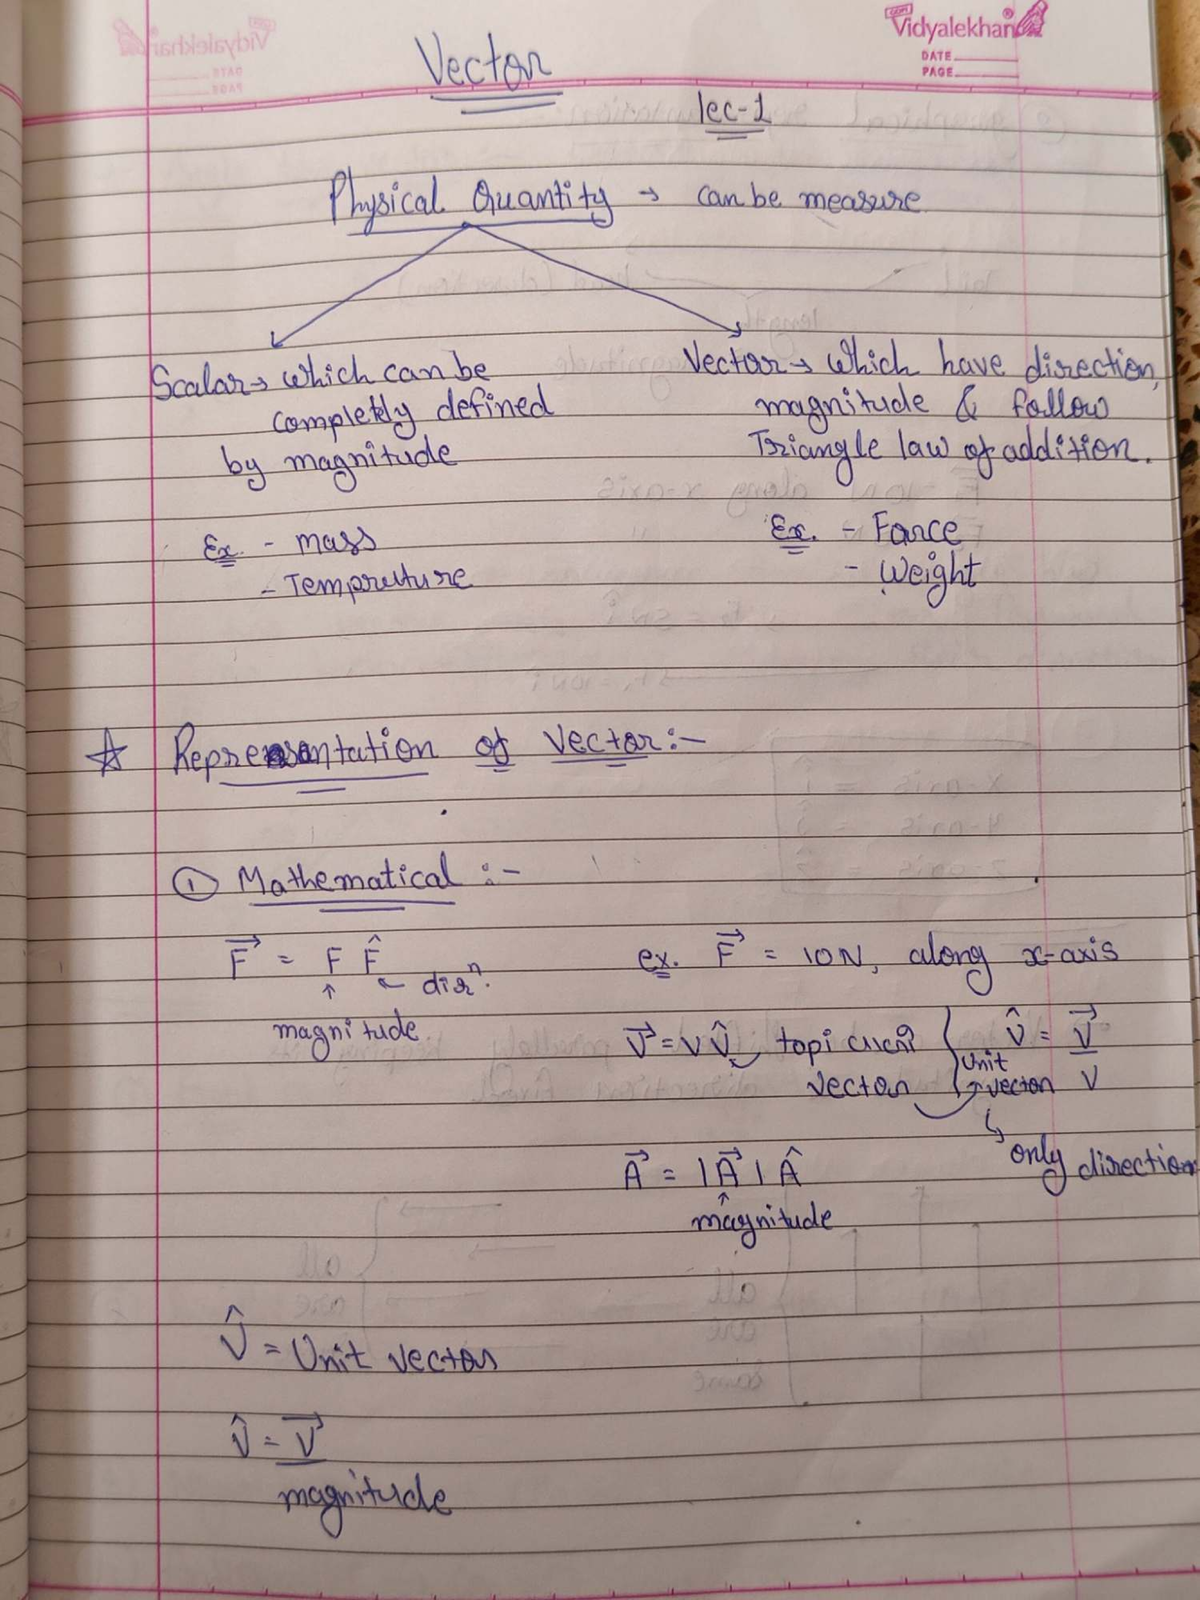 Vidyalekhan
DATE
PAGE
Vector
lec-1
Physical Quantity → can be measure
Scalar → which can be
completely defined
by magnitude
Ex. - mass
- Tempreture
Vector → which have direction,
magnitude & follow
Triangle law of addition.
Ex. - Force
- Weight
☆ Representation of vector:-
① Mathematical :-
F⃗ = F F̂
↑ ← dirⁿ.
magnitude
ex. F⃗ = 10N, along x-axis
V⃗ = V V̂ topi
vector
Unit
vector
V̂ = V⃗ / V
↳ only direction
A⃗ = |A⃗| Â
↑
magnitude
V̂ = Unit vector
V̂ = V⃗
magnitude